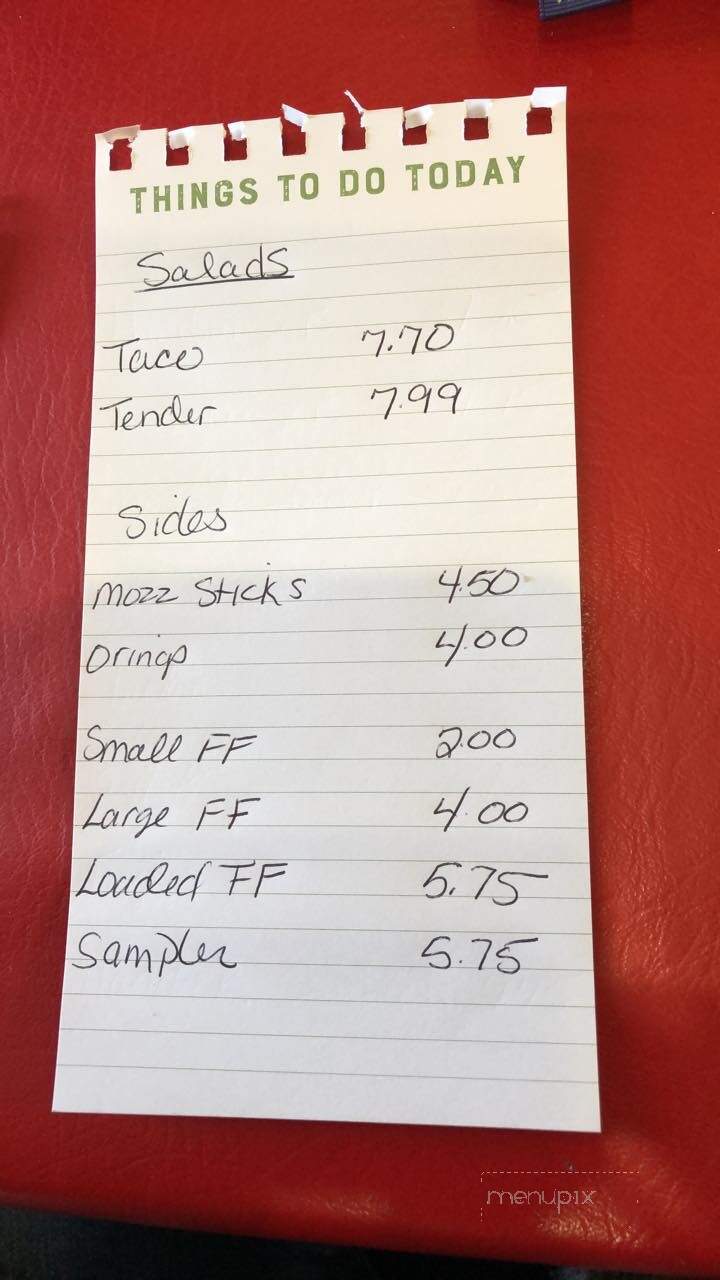 THINGS TO DO TODAY
Salads
Taco 7.70
Tender 7.99
Sides
Mozz Sticks 4.50
Orings 4.00
Small FF 2.00
Large FF 4.00
Loaded FF 5.75
Sampler 5.75
menupix